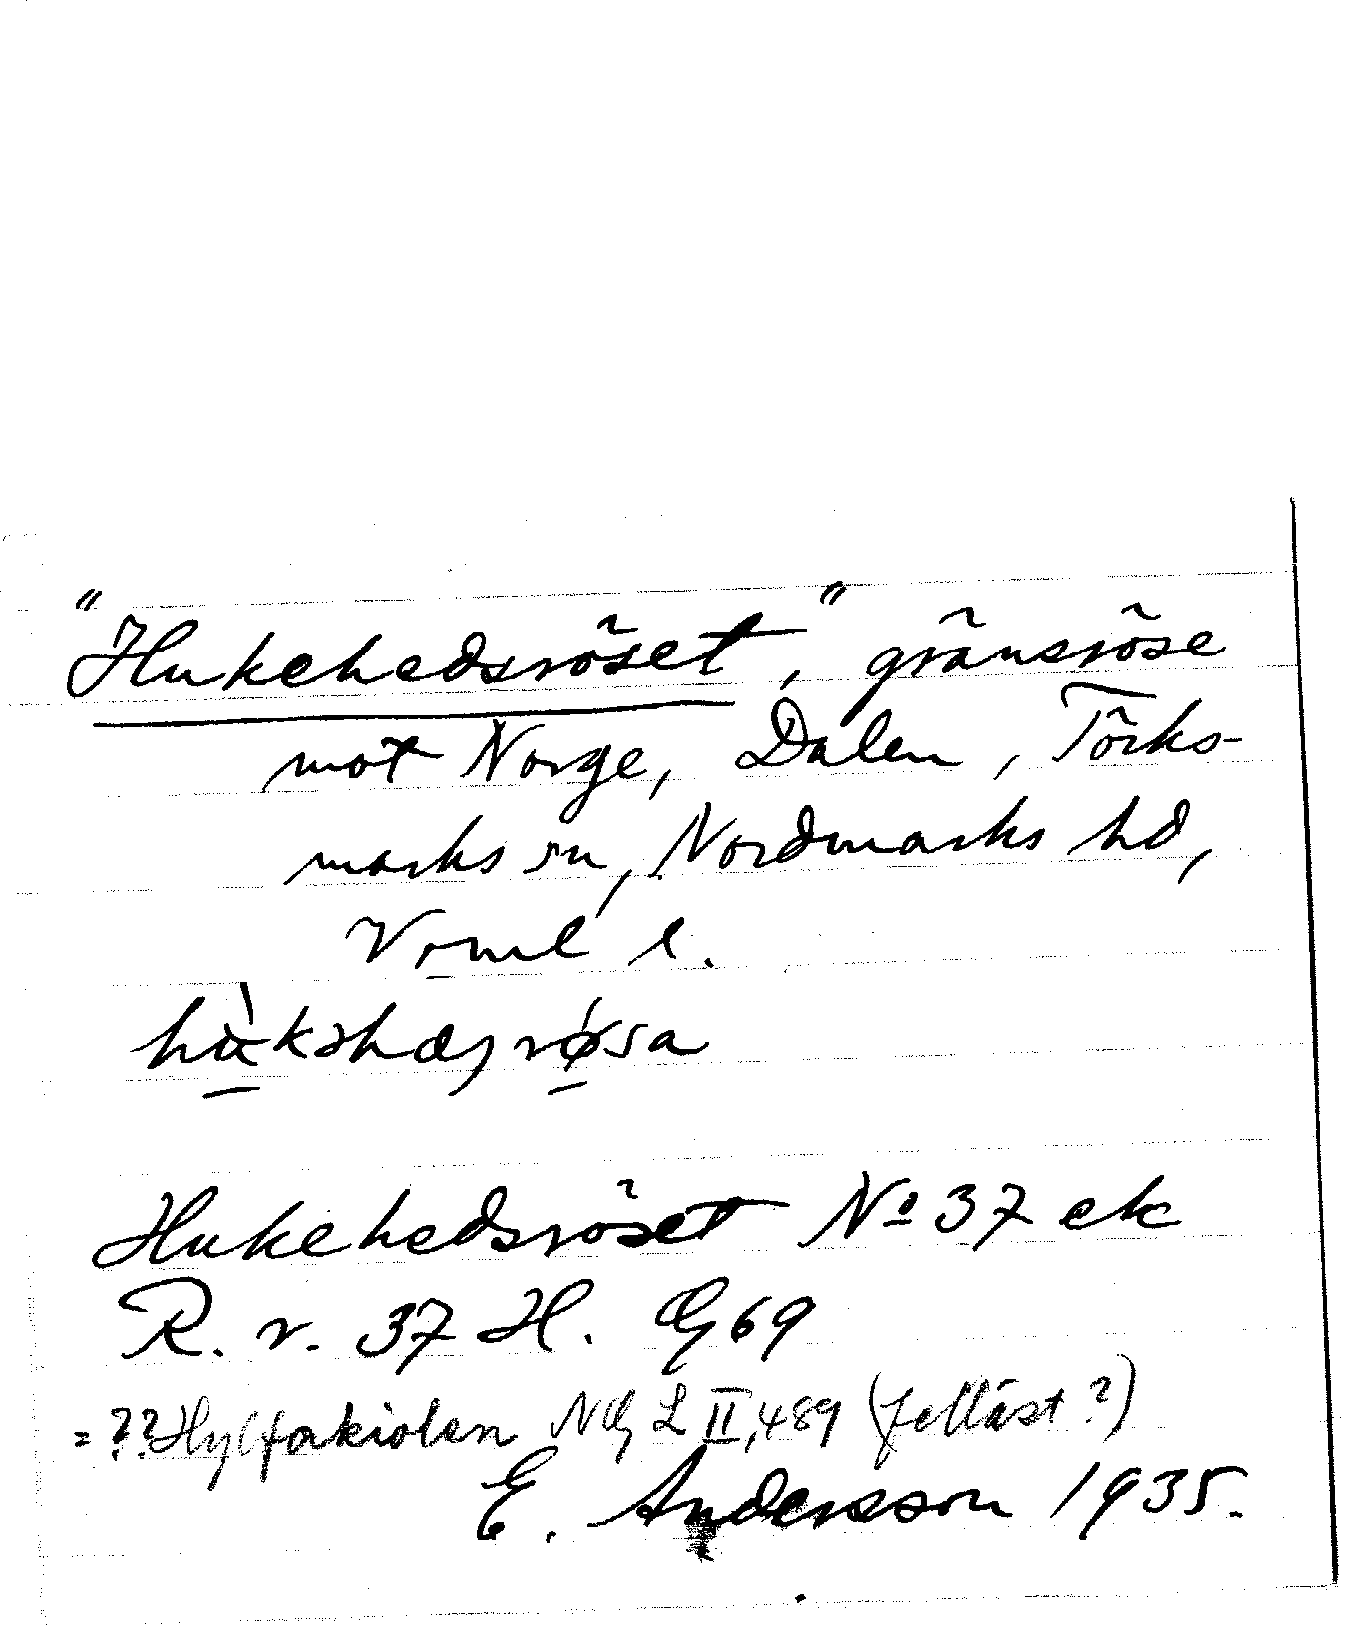 "Hukehedsröset", gränsröse
mot Norge, Dalen, Törks-
marks sn, Nordmarks hd,
Vrml l.
Hukehedsröset No 37 ek
R. r. 37 H. G 69
= ??Hylfarkiolen NG L II, 489 (felläst?)
E. Andersson 1935.